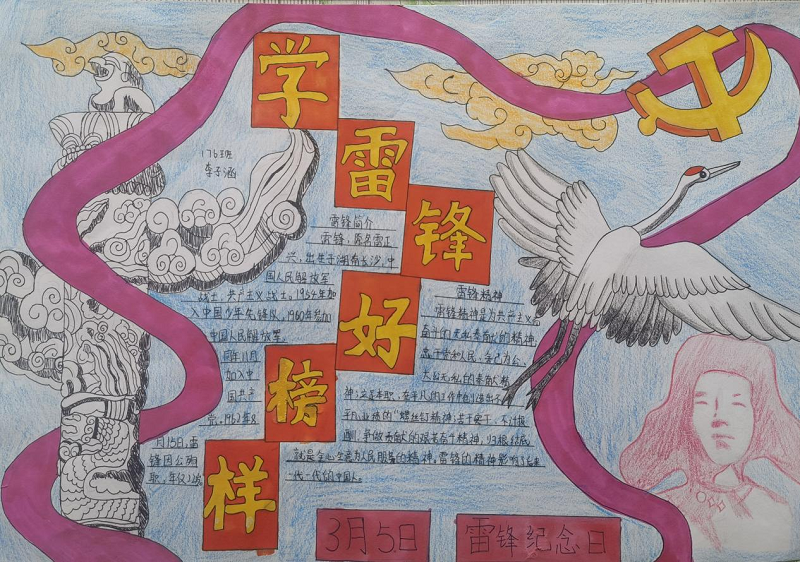 学雷锋好榜样
176班
李子涵
雷锋简介
雷锋,原名雷正
兴,出生于湖南长沙,中
国人民解放军
战士,共产主义战士。1954年加
入中国少年先锋队,1960年参加
中国人民解放军,
同年11月
加入中
国共产
党。1962年8
月15日,雷
锋因公殉
职,年仅22岁
雷锋精神
雷锋精神是为共产主义
奋斗的无私奉献的精神
忠于党和人民、舍己为公、
大公无私的奉献精
神;立足本职、在平凡的工作中创造出不
平凡业绩的“螺丝钉精神;苦干实干、不计报
酬、争做贡献的艰苦奋斗精神,归根结底
就是全心全意为人民服务的精神,雷锋的精神影响了后来
一代一代的中国人。
3月5日
雷锋纪念日